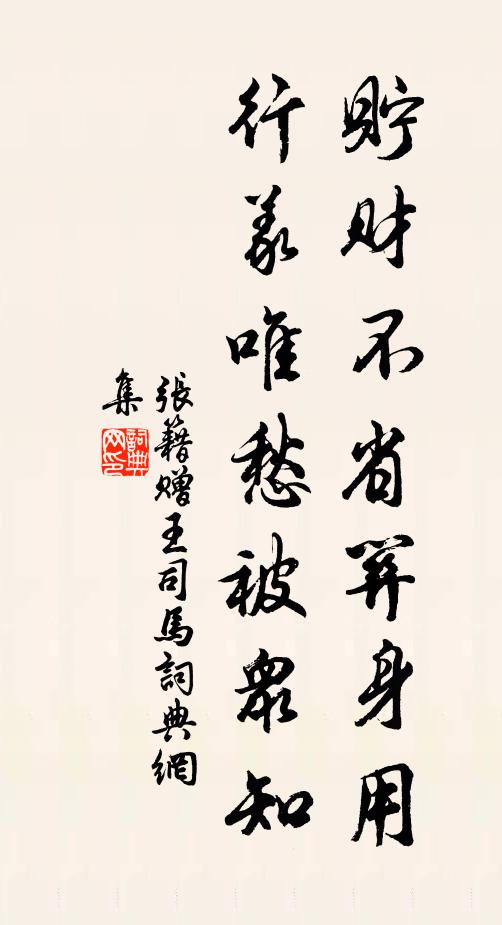 貯財不省算身用
行義唯愁被衆知
張籍贈王司馬詞典網
集
詞典网印